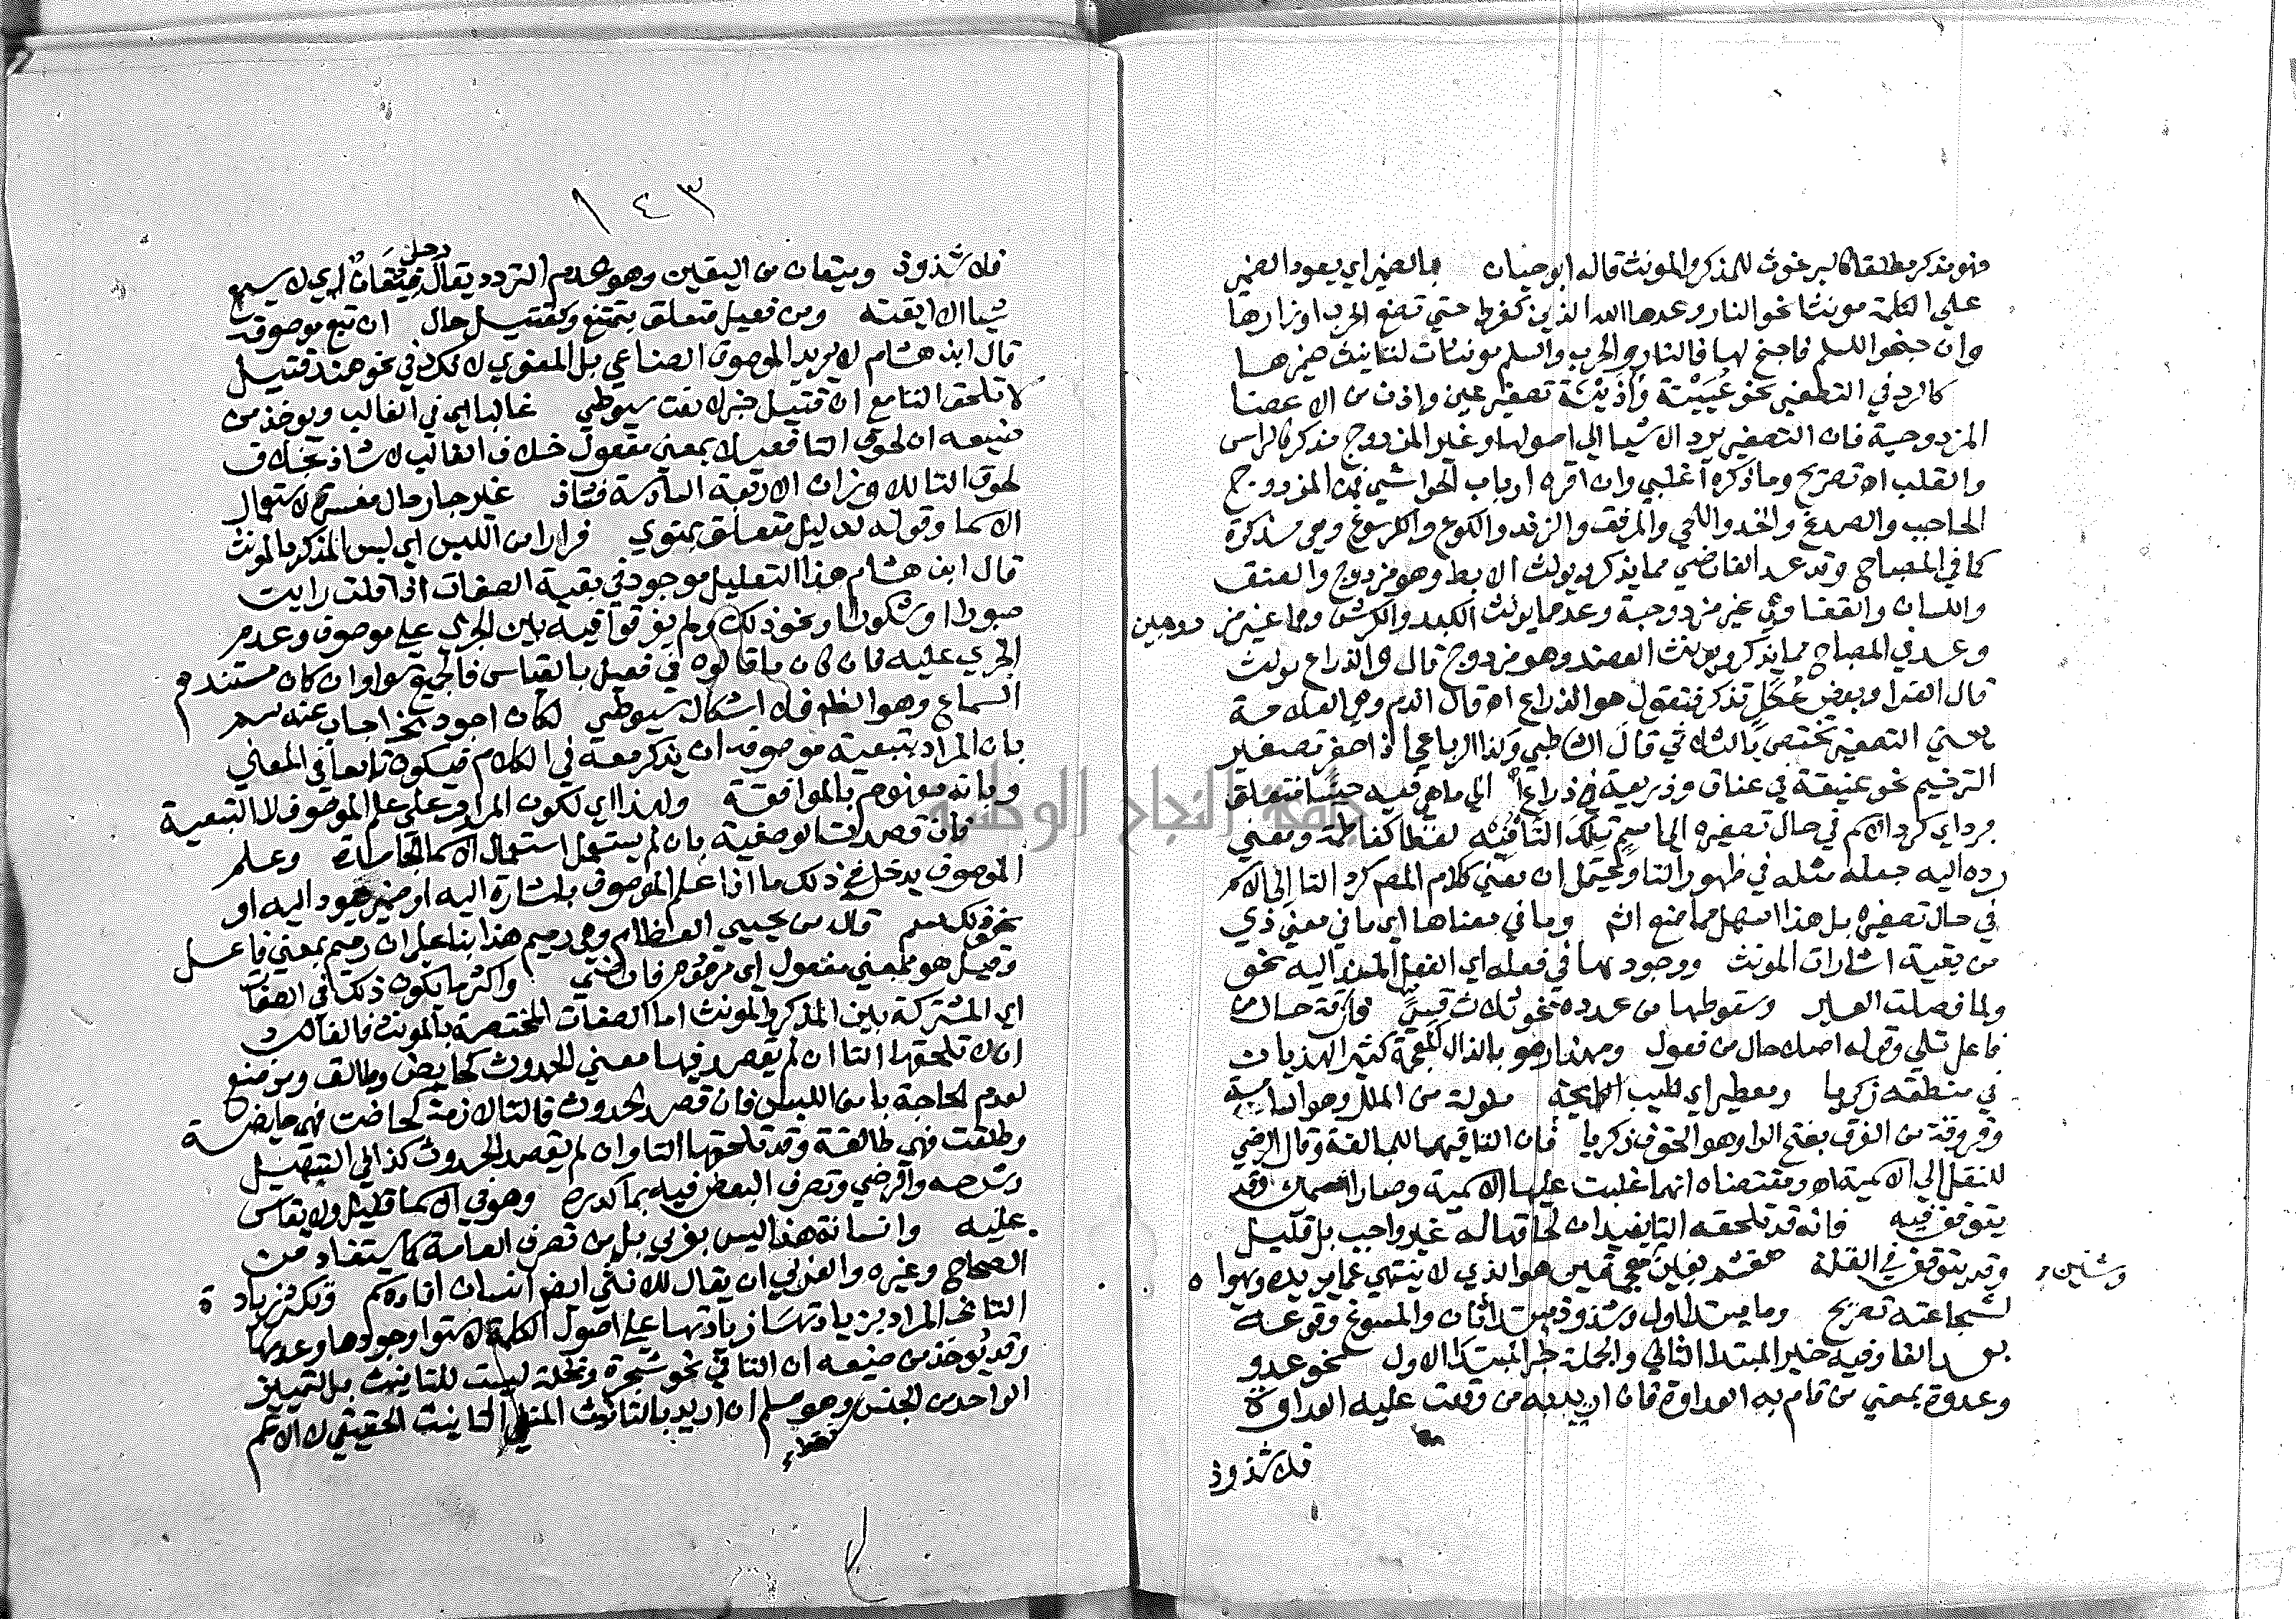 فهو مذكر مطلقا كالبرغوث للمذكر والمونث قاله ابو حيان بالضمير اي يعود الضمير
علي الكلمة مونثا نحو النار وعدها الله الذين كفروا حتي تضع الحرب اوزارها
وان جنحوا للسلم فاجنح لها فالنار والحرب والسلم مونثات لتانيث ضميرها
كالرد في التصغير نحو عُيَيْنة وأُذَيْنَة تصغير عين واذن من الاعضا
المزدوجية فان التصغير يرد الاشيا الي اصولها وغير المزدوج مذكر كالراس
والقلب اه تصريح وما ذكره اغلبي وان اقره ارباب الحواشي فمن المزدوج
الحاجب والصدغ والخد واللحي والمرفق والزند والكوع والكرسوع وهي مذكرة
كما في المصباح وقد عد الفارضي مما يذكر ويونث الابط وهو مزدوج والعنق
واللسان والقفا وهي غير مزدوجية وعد مما يونث الكبد والكرش وهما غير مزدوجين
وعد في المصباح مما يذكر ويونث العضد وهو مزدوج قال والذراع يونث
قال الفرا وبعض عُكَل تذكر فتقول هو الذراع اه قال الدم وهي العلامة
يعني التصغير تختص بالثلاثي قال الشاطبي وكذا الرباعي اذا صغر تصغير
الترخيم نحو عنيقة في عناق وذريعة في ذراع الي ما هي فيه حسا متعلق
برد اي كرد الاسم في حال تصغيره الي اسم تلك التا فيه لفظا كفاطمة ومعني
رده اليه جعله مثله في ظهور التا ويحتمل ان معني كلام المصم كرد التا الي الاسم
في حال تصغيره بل هذا اسهل مما صنع الشم وما في معناها اي ما في معني ذي
من بقية اشارات المونث ووجودها في فعله اي الفعل المسند اليه نحو
ولما فصلت العير وسقوطها من عدده نحو ثلاث قسيّ فارقة حال من
فاعل تلي وقوله اصلا حال من فعول ومهذار هو بالذال المعجمة كثير الهذيان
في منطقه زكريا ومعطير اي لطيب الرايحة ملولة من الملل وهو السآمة
وفروقة من الفرق بفتح الرا وهو الخوف زكريا فان التا فيهما للمبالغة وقال الرضي
للنقل الي الاسمية اه ومقتضاه انهما غلبت عليهما الاسمية وصارا اسمان وقد
يتوقف فيه فانه قد تلحقه التا يفيد ان لحاقها له غير واجب بل قليل
وقد يتوقف في القلة مغشم بغين معجمة وشين هو الذي لا ينتهي عما يريده ويهواه
لشجاعته تصريح وما مبتدا اول وشذوذ مبتدا ثان والمسوغ وقوعه
بعد الفا وفيه خبر المبتدا الثاني والجملة خبر المبتدا الاول نحو عدو
وعدوة بمعني من قام به العداوة فان اريد به من وقعت عليه العداوة
فلا شذوذ
١٤٣
فلا شذوذ وميقان من اليقين وهو عدم التردد يقال رجل مِيْقَانٌ اي لا يسمع
شيا الا ايقنه ومن فعيل متعلق بتمتنع وكقتيل حال ان تبع موصوفه
قال ابن هشام لا يريد الموصوف الصناعي بل المعنوي لانك في نحو هند قتيل
لا تلحق التا مع ان قتيل خبر لا نعت سيوطي غالبا اي في الغالب ويوخذ من
صنيعه ان لحوق التا فعيلا بمعني مفعول خلاف الغالب لا شاذ بخلاف
لحوق التا للاوزان الاربعة السابقة فشاذ غير جار حال مفسرة لاستعمال
الاسما وقوله لدليل متعلق بمنوي فرارا من اللبس اي لبس المذكر بالمونث
قال ابن هشام هذا التعليل موجود في بقية الصفات اذا قلت رايت
صبورا او شكورا ونحو ذلك ولم يفرقوا فيه بين الجري علي موصوف وعدم
الجري عليه فان كان ما قالوه في فعيل بالقياس فالجميع سوا وان كان مستندهم
السماع وهو الظم فلا اشكال سيوطي لكان اجود نحو اجاب عنه سم
بان المراد بتبعية موصوفه ان يذكر معه في الكلام فيكون تابعا في المعني
وبانه مفهوم بالموافقة ولهذا اي لكون المراد علي علم الموصوف لا التبعية
فان قصدت الوصفية بان لم يستعمل استعمال الاسما الجامدة وعلم
الموصوف يدخل في ذلك ما اذا علم الموصوف باشارة اليه او ضمير يعود اليه او
نحو ذلك سم قال من يحيي العظام وهي رميم هذا بنا علي ان رميم بمعني فاعل
وقيل هو بمعني مفعول اي مرموم فارضي واكثر ما يكون ذلك في الصفات
اي المشتركة بين المذكر والمونث اما الصفات المختصة بالمونث فالغالب
ان لا تلحقها التا ان لم يقصد فيها معني الحدوث كحايض وطالق ومرضع
لعدم الحاجة بامن اللبس فان قصد الحدوث فالتا لازمة كحاضت فهي حايضة
وطلقت فهي طالقة وقد تلحقها التا وان لم يقصد الحدوث كذا في التسهيل
وشرحه واقرضي وتصرف البعض فيه بما كدره وهو في الاسما قليل ولا يقاس
عليه وانسانة هذا ليس بعربي بل من تصرف العامة كما يستفاد من
الصحاح وغيره والعربي ان يقال للانثي ايضم انسان افاده سم وتكثر زيادة
التا نحو المراد بزيادتها زيادتها علي اصول الكلمة لاستوا وجودها وعدمها
وقد يوخذ من صنيعه ان التا في نحو شجرة ونخلة ليست للتانيث بل لتمييز
الواحد من الجنس وهو مسلم ان اريد بالتانيث المنفي التانيث الحقيقي لا الاعم